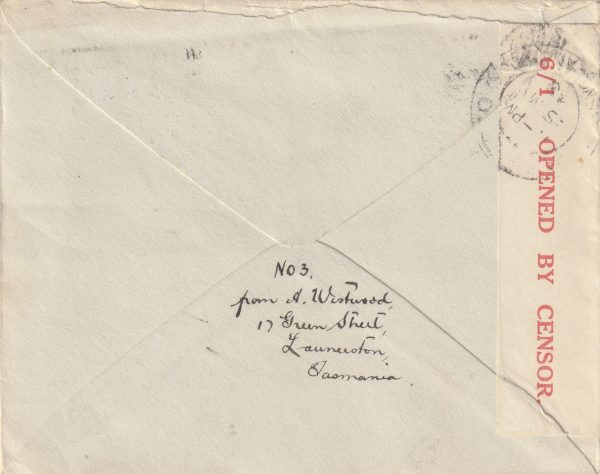 6/1 OPENED BY CENSOR.
NO 3,
from A. Westwood,
17 Green Street,
Launceston,
Tasmania.